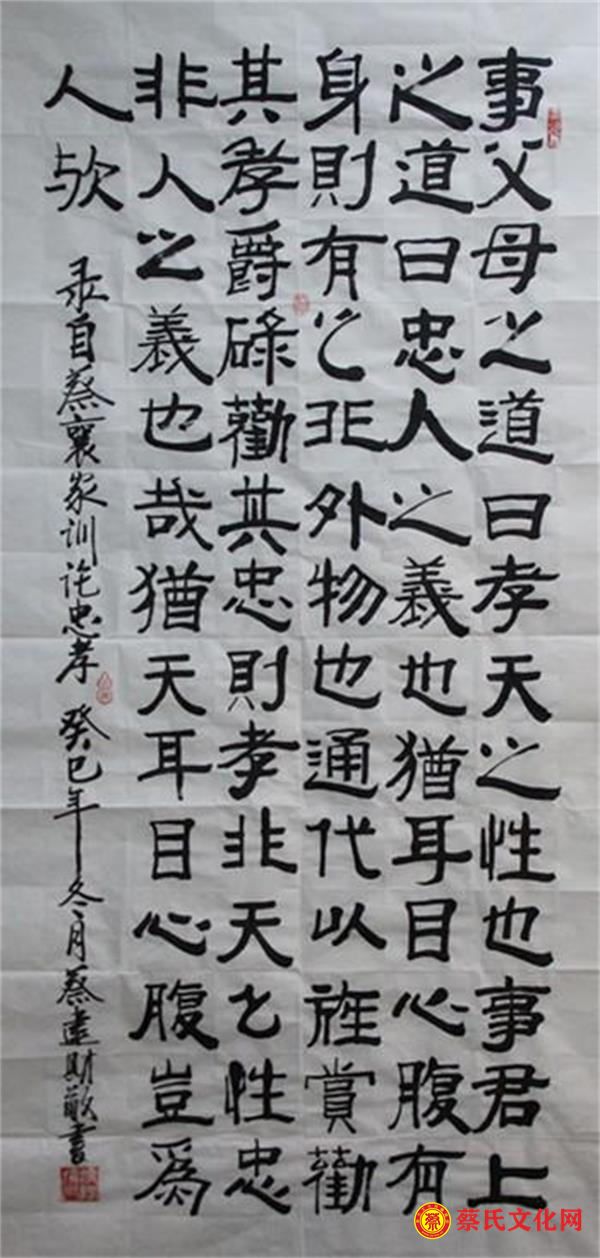 事父母之道曰孝天之性也事君上
之道曰忠人之義也猶耳目心腹有
身則有之非外物也通代以旌賞勸
其孝爵碌勸其忠則孝非天之性忠
非人之義也哉猶天耳目心腹豈爲
人欤
录自蔡襄家训论忠孝 癸巳年冬月蔡建财敬書
蔡氏文化网